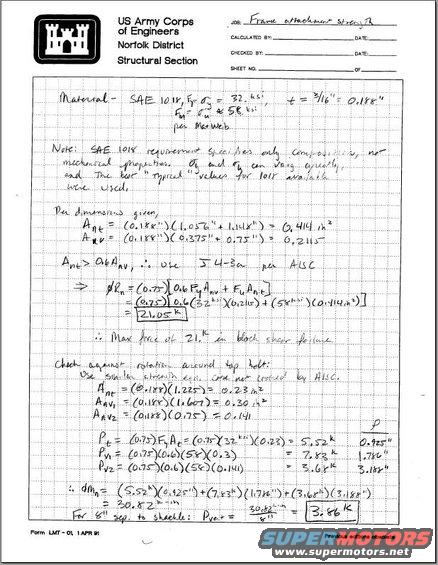 US Army Corps
of Engineers
Norfolk District
Structural Section
JOB: Frame attachment strength
CALCULATED BY: DATE:
CHECKED BY: DATE:
SHEET NO. OF
Material - SAE 1018, Fy = σy = 32. ksi, t = 3/16" = 0.188"
Fu = σu ≈ 58 ksi
per MatWeb
Note: SAE 1018 requirement specifies only composition, not
mechanical properties. σy and σu can vary greatly,
and the best "typical" values for 1018 available
were used.
Per dimensions given,
Ant = (0.188")(1.056" + 1.148") = 0.414 in²
Anv = (0.188")(0.375" + 0.75") = 0.2115
Ant > 0.6 Anv, ∴ use J4-3a per AISC
⇒ ØRn = (0.75)[0.6 Fy Anv + Fu Ant]
= (0.75)[0.6(32 ksi)(0.2115) + (58 ksi)(0.414 in²)]
= 21.05 k
∴ Max force of 21. k in block shear failure
Check against rotation around top bolt:
Use similar strength eqn. Case not covered by AISC.
Ant = (0.188)(1.225) = 0.23 in²
Anv1 = (0.188)(1.607) = 0.30 in²
Anv2 = (0.188)(0.75) = 0.141
ρ
Pt = (0.75) Fy At = (0.75)(32 ksi)(0.23) = 5.52 k 0.925"
Pv1 = (0.75)(0.6)(58)(0.3) = 7.83 k 1.786"
Pv2 = (0.75)(0.6)(58)(0.141) = 3.68 k 3.188"
∴ ØMn = (5.52 k)(0.925") + (7.83 k)(1.786") + (3.68 k)(3.188")
= 30.82 k-in
For 8" sep. to shackle: = 30.82 k-in / 8" = 3.86 k
Form LMT - 01, 1 APR 91 Previous editions obsolete
SUPERMOTORS
www.supermotors.net